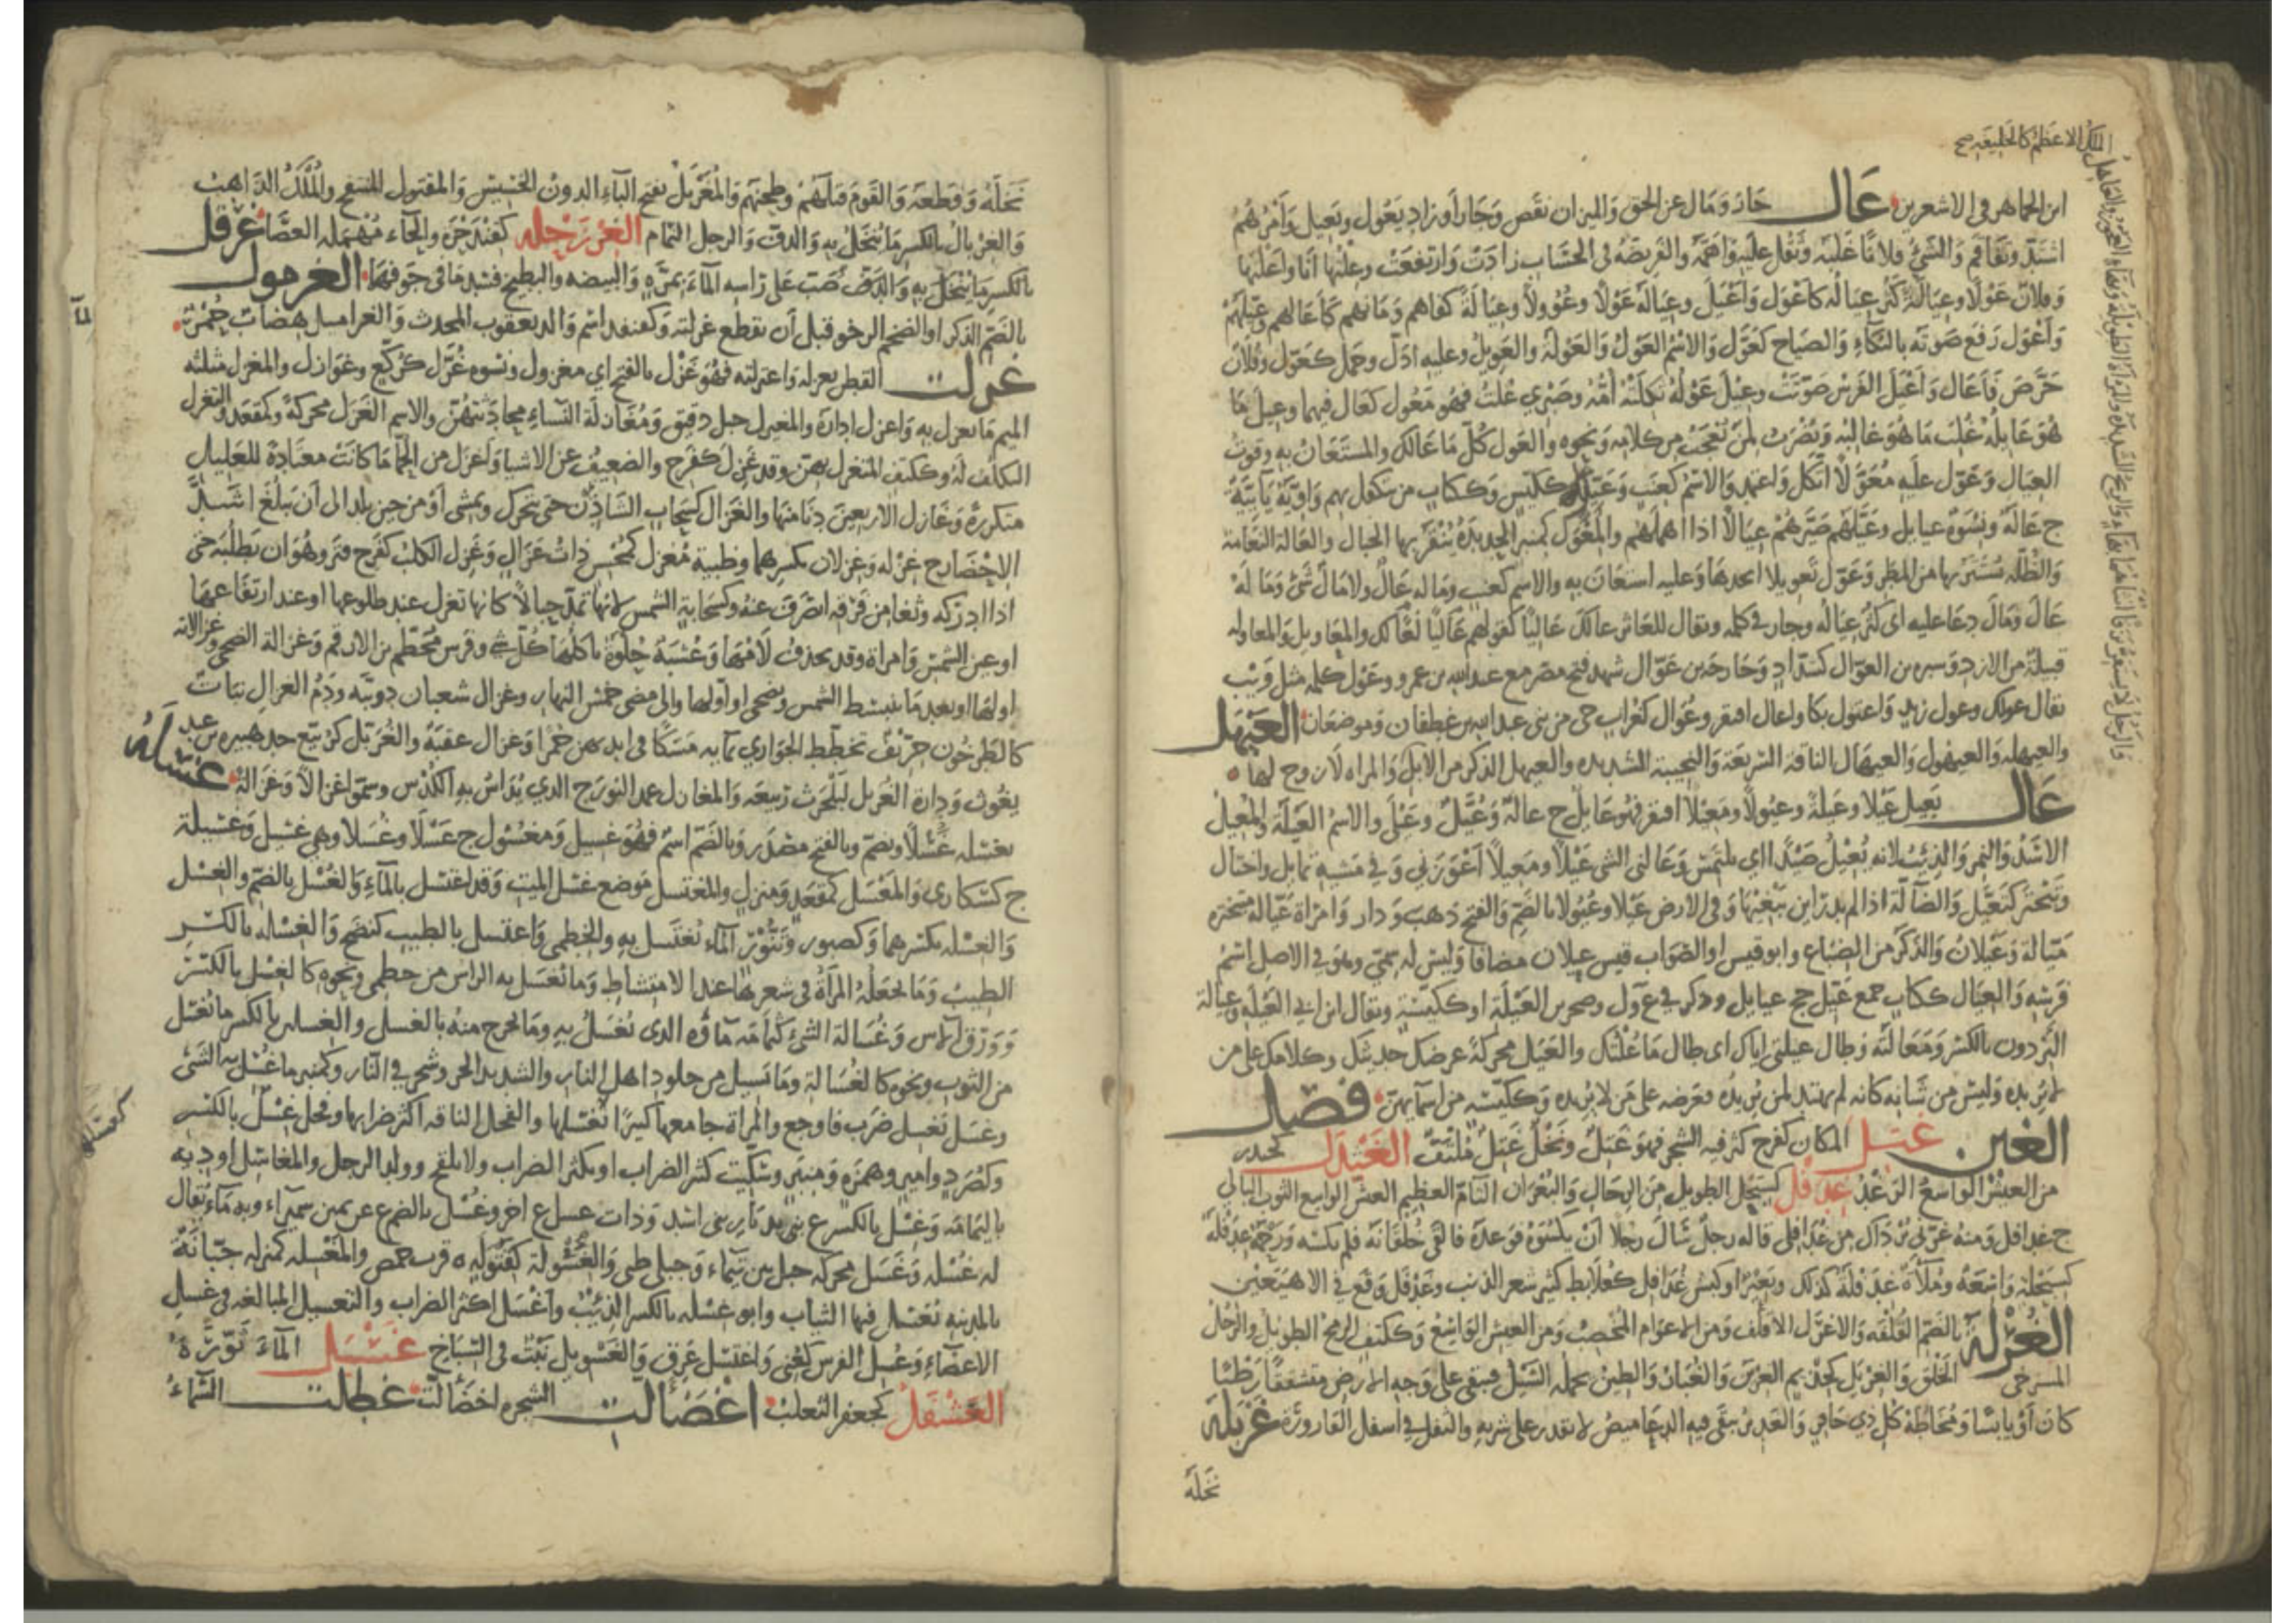 الملك الاعظم كالخليفة صح
ابن الجماهر في الاشعرين عَالَ حَادَ وَمَال عن الحق وَالميزان نقَص وَجَار أو زاد يَعُول ويَعيل وَأمْرُهُمْ
اشتدّ وتَفَاقَم وَالشيُ فلانًا غَلَبَه وَثَقُل عليْه وَاهَمَّه والفَريضَةُ في الحسَاب زادَتْ وَارتفعَتْ وعلْتُها أنا وأعَلْتُها
وفلانٌ عَوْلًا وعيَالَةً كَثُر عيَالُه كاعْوَلَ وَأعْيَلَ وعيَالَهُ عَوْلًا وعُؤُولًا وعيَالَةً كفاهم وَمَانهم كأعَالهم وعَيَّلَهُمْ
وَأعْوَل رَفعَ صَوتَه بالبُكاءِ وَالصيَاح كعَوَّلَ وَالاسْمُ العَوْلُ وَالعَوْلَةُ والعَوِيلُ وعليه ادَلّ وحَمَل كعَوّل وفُلانٌ
حَرَصَ كأعَال وَأعْيَلَ القَوْسُ صَوّتَتْ وعِيلَ عَوْلُهُ ثكلَتْهُ أمّه وصَبْري عُلِبَ فهُوَ مَعُول كعَال فيهما وعِيلَ مَا
هُوَ عَائلُهُ غُلبَ مَا هُوَ غالبُه وَيُضْرَبُ لمَنْ يُعْجَبُ من كلامه وَنحوه والعَول كلّ مَا عَالك والمستَعَان به وقوتُ
العيَال وَعَوّل علَيه مُعَوَّلًا اتكل وَاعتمد والاسْم كعِنَب وَعَيِّلُكَ ككيّس وَككتاب من تتكفل بهم وَاويّة يَائيّة
ج عَالَةٌ ونسْوَة عيايل وعَيّلَهُم صَيَّرَهُمْ عِيَالًا اذا اهملهُم والمِعْوَل كمِنبر الحديدَة يُنْقَرُ بها الجبال والعَالة النَعَامة
وَالظُّلة يُسْتَتَر بها من المطَر وَعَوّل تَعْويلا اتخذهَا وَعليه استَعَانَ به والاسم كعِنب وماله عَالٌ ولا مَالٌ شَيْ وَمَا لَهُ
عَالَ وَمَالَ دعَاء عليه اى كَثُر عيَالُه وجار في حكمه ويقال للعَاثر عالكَ عَاليًا كقولهم لعًا لك والمعَاويل وَالمعاوله
قبيلة من الازد وَسبره بن العوّال كشدّادٍ وَحَارثة بن عَوّال شهد فتح مصر مع عبد الله بن عمرو وعَوْل كلمة مثل وَيْب
يقال عولك وعول زيد وَاعتول بكا واعال افتقر وعُوال كغُراب حى من بنى عبد الله بن غطفان وَموضعَان العَيْهَلُ
والعيهلة وَالعيهول وَالعيهَال الناقة السّريعَة وَالنجيبة الشديدة والعيهل الذكر من الابل وَالمراة لا زوج لها
عَالَ يَعيل عَيْلًا وعَيلَةً وعيُولًا ومَعِيلًا افتقر فهُو عَايلٌ ج عالَةٌ وَعُيَّلٌ وعَيْلَى والاسمُ العَيلَة والمُعيل
الاسَد وَالنمر وَالذئب لانه يُعيْلُ صَيْدًا اي يلتمس وَعَالنى الشى عَيْلًا ومَعِيلًا أعْوَزَني وَفي مَشيه تمايل واختال
وَتبخْتَر كتَعَيّل وَالضَآلّة اذا لم يَدْر أين يَبْغيهَا وَفي الارض عَيْلًا وعُيُولًا بالضّم وَالفتح ذهَبَ وَدار وَامرَاة عَيّالة متبختره
مَيّالة وَعَيْلَانُ وَالذكَر من الضبَاع وابو قيس او الصّوَاب قيس عيلان مضافا وَليسَ له سَمِيّ وهوَ في الاصل اسْمُ
فَرسه وَالعِيَال ككتاب جمع عَيّل جج عيايل وذكر في ع ول وصخر بن العَيْلَة او ككيّسة ويقال ابن ابي العَيْلَة وعيَالة
البرذون بالكسْر وَمَعَالتُه وَطال عيلتى اياك اى طال مَا عُلتُك والعَيَل محركةً عرضك حديثك وكلامك على من
لا يُريده وَليسَ من شَانه كانه لم يهتد لمن يُريده فعَرضه على مَن لا يُريده وَككيّسة من اسمآئهنّ فصل
الغين غَبِلَ المكان كفرح كثر فيه الشجر فهوَ غَبِلٌ وَنَخْلٌ غَبِلٌ مُلتَفّ الغَيْدَلُ كحيدر
من العيش الوَاسعُ الرَغَدُ غِدَفْل كسِبَحْل الطويل من الرجَال وَالبُعْرَان التّام العظيم العيش الواسع الثوب البالي
ج غدافل وَمنه غرّنى بُرْدَاك من غَدَافلى قاله رجلٌ سَال رجلًا أنْ يَكسُوَهُ فوَعدَهُ فالقَى خُلقَانَه فلم يكسه وَرَحمة غِدَفْلَة
كسبحْلة وَاسَعَة ومُلَآةٌ غدَفلَة كذلك وبَعيْر او كبش غُدَافل كعُلابط كثير شعر الذنب وغِدَفْل وَقع في الاهيَغَيْن
الغُرْلَة بالضّم القُلْفَة وَالاغرَل الاقلف وَمن الاعوَام المخصب وَمن العيش الوَاسع وَككتف الرمح الطويل والرّجلُ
المسترخى الخَلْق وَالغِرْيَل كحِذْيَم الغِرْيَن وَالغُبَار وَالطين يحمله السَيْل فيبقى على وَجه الارض متشققًا رَطْبًا
كان أوْ يَابسًا وَمُخَاطَة كُل ذي حَافر وَالغدير يَبقَى فيه الدعَاميصُ لا يقدر على شربه والثفل في اسفل القارورة غَرْبَلَهُ
نَخَلَهُ
نَخَلَهُ وَقطَعَه وَالقَومَ قتَلَهُمْ وطَحنهُم وَالمُغَرْبَلُ بفتح البآء الدونُ الخسيسُ وَالمقتول المنتفخ والمُلْكُ الذاهبُ
وَالغِرْبالُ بالكسر مَا يُنخَلُ به وَالدفّ وَالرجل النمّام الغِرْزَحْلَةُ كقِنْذَحْرَة والحَاء مُهْملة العصَا غَرْقَلَ
صَبّ عَلى رَاسه المآءَ بمَرَّةٍ وَالبيضة والبطيخ فسَد مَا في جَوفهَا الغُرْمول
بالضمّ الذكر او الضخم الرخو قبل أن تقطع غرلته وَكقنفذ اسْم وَالد يعقوب المحدث وَالغراميل هضَبات حُمْرٌ
غَزَلَت القطن تغزله وَاغتزلته فهُوَ غَزْل بالفتح اي مغزول ونسوه غُزَّل كرُكّع وغوازل والمغزل مثلثة
الميم مَا يغزل به وَاغزل ادارَه والمغيزل حبل دقيق وَمُغَازلَة النسَاءِ محادَثتهُنّ والاسم الغَزَل محركةً وكمقعَد والتغزل
التكلّف لَهُ وَككتف المتغزل بهنّ وَقد غَزِلَ كفَرح والضعيْف عن الاشيَا وَأغْزَل من الحُمَّا مَا كانَتْ معتَادَةً للعَليل
متكررةً وَغَازل الاربعين دنَا منها والغَزَال كسَحَاب الشَاذِن حيَن يتحرك ويمشى أوْ من حين يلد الى أن يَبلُغ اشَدَّ
الاحْضَار ج غِزْلَة وَغزلان بكسرهما وظبية مُغزل كمُحْسن ذات غزَالٍ وَغَزل الكلبُ كفَرح فتر وهُوَ ان يَطلُبَه حَتى
اذا ادرَكه وَثغَا من فَرَقه انصَرَفَ عنه وَكسَحَابة الشمس لانها تمدّ حبالًا كانها تغزل عند طلوعها او عند ارتفَاعهَا
او عين الشمْسِ وَامراة وَقد يحذف لَامُهَا وَعُشْبَةٌ حُلوَةٌ ياكلُهَا كُلُّ شَيْ وفَرس محَطّم بن الارقم وَغزالة الضحى وغزالاته
اولهَا او بعيد مَا ينبسط الشمس ويضحى او أولها وَالى مضى خمُس النهار وغزال شعبان دويبّة ودَمُ الغزال نبَات
كالطرخُون حرّيْفٌ تخطّط الجوَاري بمآيه مَسَكًا في ايديهن حُمْرًا وَغزال عقبَة والغُزَيّل كزُبير ع جد هبيره بن عبد
يغُوث وَدارة الغُزَيّل لبَلحَرث بن ربيعَة وَالمغازل عمد النورَج الذي يُدَاسُ به الكُدْسُ وسمّوا غزالًا وَغزالَة غَسَلَهُ
يغسله غَسْلًا ويضم وبالفتح مصدَر وَبالضمّ اسْم فهُوَ غَسيل وَمغسُول ج غَسْلَى وغُسَلَا وهي غَسيل وَغسيلة
ج كسَكارى وَالمَغسل كمَقعَد وَمنزل والمغتسل مَوضع غسل الميت وَقد اغتسَل بالمآءِ وَالغُسْل بالضمّ والغسْل
وَالغسْلة بكسْرهما وَكصبور وَتَنُّورٍ المآء تُغتَسل به والخِطمى وَاغتسل بالطيب كتضمّخ وَالغِسْله بالكسْر
الطيبُ وَمَا تجعَلُه المَرأَةُ في شعرهَا عند الامتشَاطِ وَمَا تغسَل به الراس من خطمى ونحوه كالغِسْل بالكسْر
وَوَرَق الآس وَغُسَالة الشئ كثُمَامَة مآؤه الذى يُغسَلُ به وَمَا يخرج منهُ بالغسل والغسلين بالكسر مَا يُغسَل
من الثوب ونحوه كالغُسَالة ومَا يَسيل من جلود اهل النار والشديد الحر وشجَر في النّار وكمنبر ما غُسل به الشئ
وغَسَل يَغسل ضَرب فاوجع والمرَاة جامعها كثيرًا كغسّلها والفحل الناقة اكثر ضرابها وفحل غِسْلٌ بالكسر
كغسَّلها
وَكصُرَدٍ وامير وهمزَةٍ وَمنبَرٍ وسكّيت كثر الضراب او يكثر الضراب ولا يلقح وولد الرجل والمغاسل اودية
باليمَامة وَغسْل بالكسر ع بنى يد ديار بنى اسَد وَذات غسل ع اخر وغُسْل بالضم ع عن يمين سميراء وبه مآء يُقال
له غُسْلة وَغَسَل محركه جبل بين تيمآء وَجبلى طى وَالغَسُولَة كقَتُولة ة قرب حمص والمَغسَلة كمنزله جبّانةٌ
بالمدينة تُغسَل فيها الثياب وابو غسْله بالكسر الذِئبُ وَأغْسَل اكثر الضراب والتغسيل المبالغة في غسل
الاعضَاءِ وَغُسِل الفرس كعُنى وَاغتسَل عَرق وَالغَسْويل نَبْت في السّبَاخ غَسْبَلَ المآءَ ثَوّرَهُ
الغَسْفَل كجعفر الثعلبُ اغْضَألت الشجره اخضَألت غطلت السّمآءُ